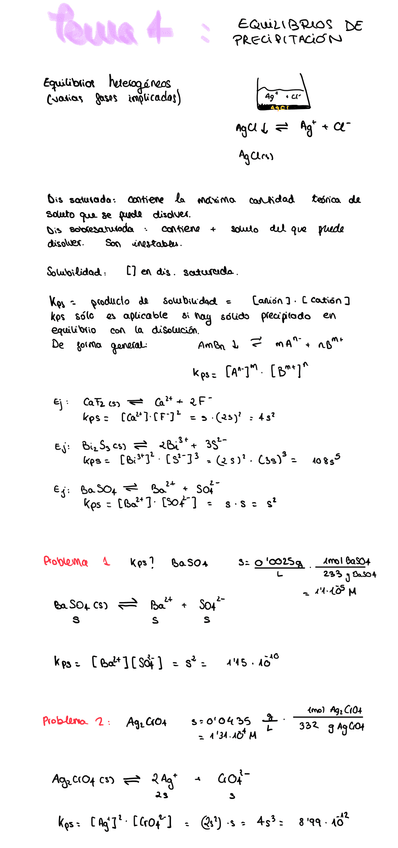 Tema 4 : EQUILIBRIOS DE
PRECIPITACIÓN
Equilibrios heterogéneos
(varias fases implicadas)
Ag⁺ Cl⁻
AgCl
AgCl↓ ⇌ Ag⁺ + Cl⁻
AgCl(s)
Dis saturada: contiene la máxima cantidad teórica de
soluto que se puede disolver.
Dis sobresaturada: contiene + soluto del que puede
disolver. Son inestables.
Solubilidad: [] en dis. saturada.
Kps = producto de solubilidad = [anión]·[catión]
Kps sólo es aplicable si hay sólido precipitado en
equilibrio con la disolución.
De forma general: AmBn ↓ ⇌ mAⁿ⁻ + nBᵐ⁺
Kps = [Aⁿ⁻]ᵐ · [Bᵐ⁺]ⁿ
Ej: CaF₂(s) ⇌ Ca²⁺ + 2F⁻
Kps = [Ca²⁺]·[F⁻]² = s·(2s)² = 4s²
Ej: Bi₂S₃(s) ⇌ 2Bi³⁺ + 3S²⁻
Kps = [Bi³⁺]² · [S²⁻]³ = (2s)² · (3s)³ = 108s⁵
Ej: BaSO₄ ⇌ Ba²⁺ + SO₄²⁻
Kps = [Ba²⁺]·[SO₄²⁻] = s·s = s²
Problema 1 Kps? BaSO₄ s = 0'0025g/L · 1mol BaSO₄/233 g BaSO₄
= 1'1·10⁻⁵ M
BaSO₄(s) ⇌ Ba²⁺ + SO₄²⁻
s s s
Kps = [Ba²⁺][SO₄²⁻] = s² = 1'15·10⁻¹⁰
Problema 2: Ag₂CrO₄ s = 0'0435 g/L · 1mol Ag₂CrO₄/332 g AgCrO₄
= 1'31·10⁻⁴ M
Ag₂CrO₄(s) ⇌ 2Ag⁺ + CrO₄²⁻
2s s
Kps = [Ag⁺]² · [CrO₄²⁻] = (2s²)·s = 4s³ = 8'99·10⁻¹²